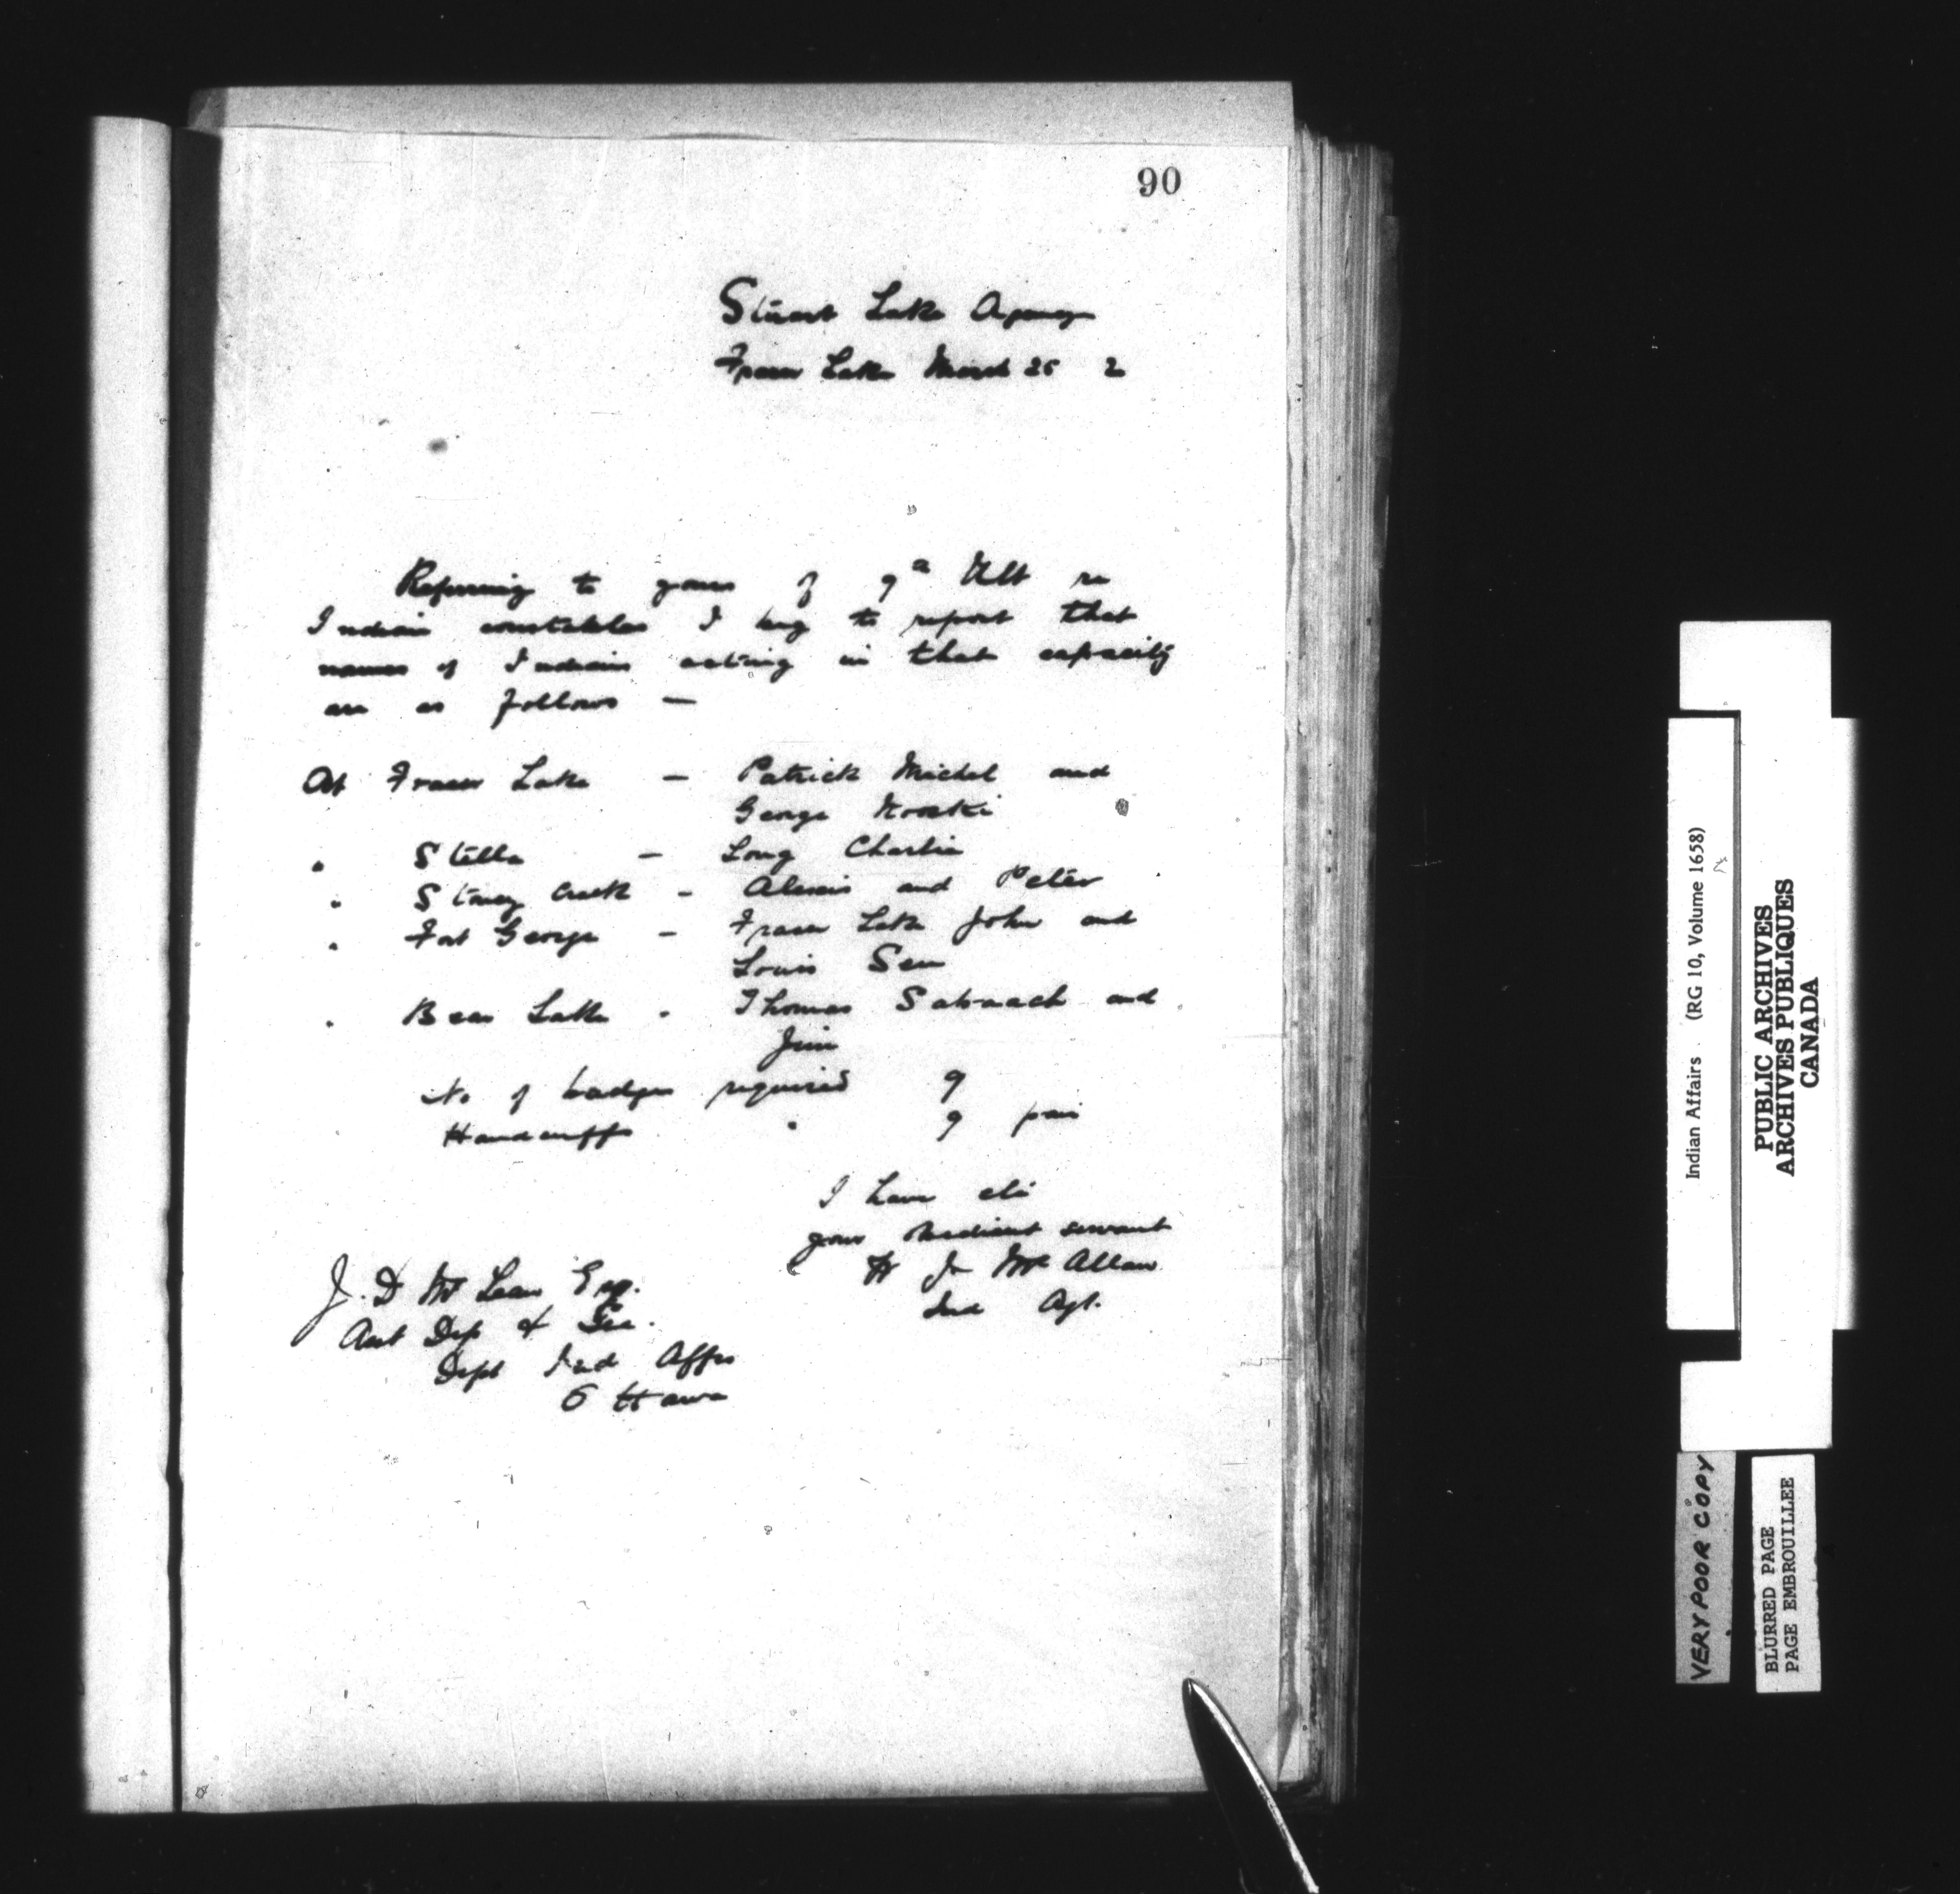 90
Stuart Lake Agency
Fraser Lake March 25 2
Referring to yours of 9th Ult re
Indian constables I beg to report that
names of Indians acting in that capacity
are as follows —
At Fraser Lake — Patrick Michel and
George
" Stella — Long Charlie
" Stoney Creek - Alexis and Peter
" Fort George - Fraser Lake John and
Louis
" Bear Lake - Thomas and
Jim
No of badges required 9
Handcuffs " 9 pair
I have etc
your obedient servant
W J Mc Allan
Ind Agt.
J. D Mc Lean Esq.
Asst Dep & Sec.
Dept Ind Affrs
Ottawa
Indian Affairs . (RG 10, Volume 1658)
PUBLIC ARCHIVES
ARCHIVES PUBLIQUES
CANADA
VERY POOR COPY
BLURRED PAGE
PAGE EMBROUILLEE